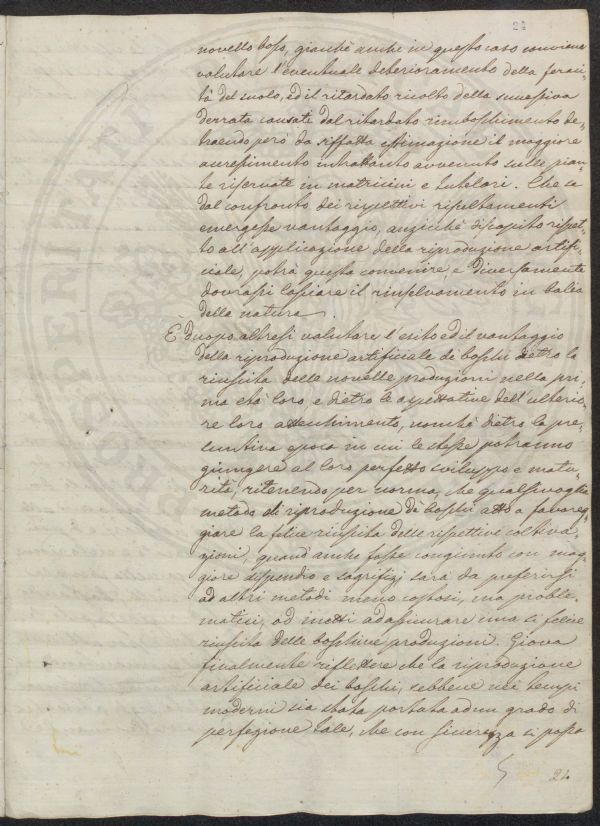 24
novello bosco, giacchè anche in questo caso conviene
valutare l'eventuale deterioramento della feraci-
tà del suolo, ed il ritardato ricolto della successiva
derrata causati dal ritardato rimboschimento de-
traendo però da siffatta estimazione il maggiore
accrescimento intrattanto avvenuto sulle pian-
te riservate in matricini e tutelari. Che se
dal confronto dei rispettivi risultamenti
emergesse vantaggio, anzicchè discapito rispet-
to all'applicazione della riproduzione artifi-
ciale, potrà questa convenire, e diversamente
dovrassi lasciare il rinselvamento in balìa
della natura.
È d'uopo altresì valutare l'esito ed il vantaggio
della riproduzione artificiale di boschi dietro la
riuscita delle novelle produzioni nella pri-
ma età loro, e dietro le aspettative dell'ulterio-
re loro attecchimento, nonchè dietro la pre-
suntiva epoca in cui le stesse potranno
giungere al loro perfetto sviluppo e matu-
rità, ritenendo per norma, che qualsivoglia
metodo di riproduzione di boschi atto a favoreg-
giare la felice riuscita delle rispettive coltiva-
zioni, quand'anche fosse congiunto con mag-
giore dispendio e sagrifizj sarà da preferirsi
ad altri metodi meno costosi, ma proble-
matici, od inetti ad assicurare una sì felice
riuscita delle boschive produzioni. Giova
finalmente riflettere che la riproduzione
artificiale dei boschi, sebbene nei tempi
moderni sia stata portata ad un grado di
perfezione tale, che con sicurezza si possa
24